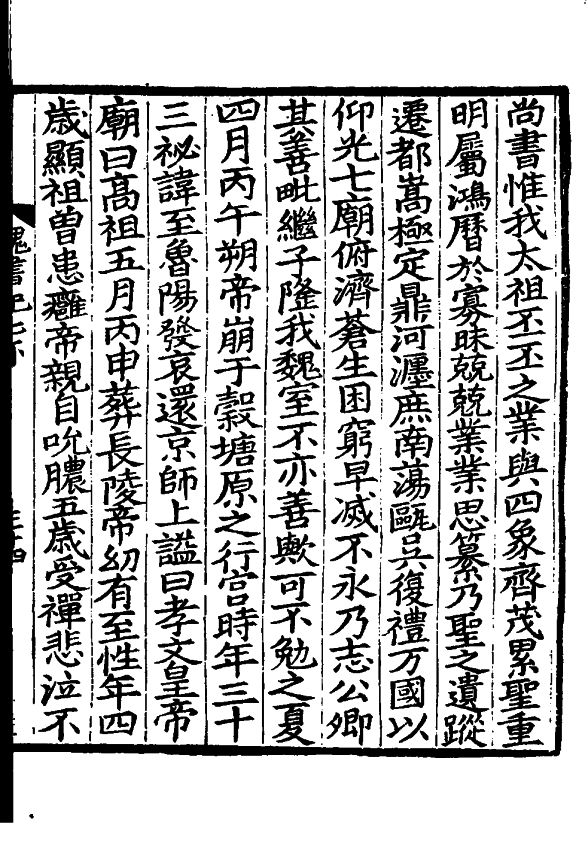 尚書惟我太祖丕丕之業與四象齊茂累聖重
明屬鴻曆於寡昧兢兢業業思纂乃聖之遺蹤
遷都嵩極定鼎河瀍庶南蕩甌吳復禮万國以
仰光七廟俯濟蒼生困窮早滅不永乃志公卿
其善毗繼子隆我魏室不亦善歟可不勉之夏
四月丙午朔帝崩于穀塘原之行宮時年三十
三祕諱至魯陽發哀還京師上謚曰孝文皇帝
廟曰高祖五月丙申葬長陵帝幼有至性年四
歲顯祖曾患癰帝親自吮膿五歲受禪悲泣不
魏書紀七下
三十四